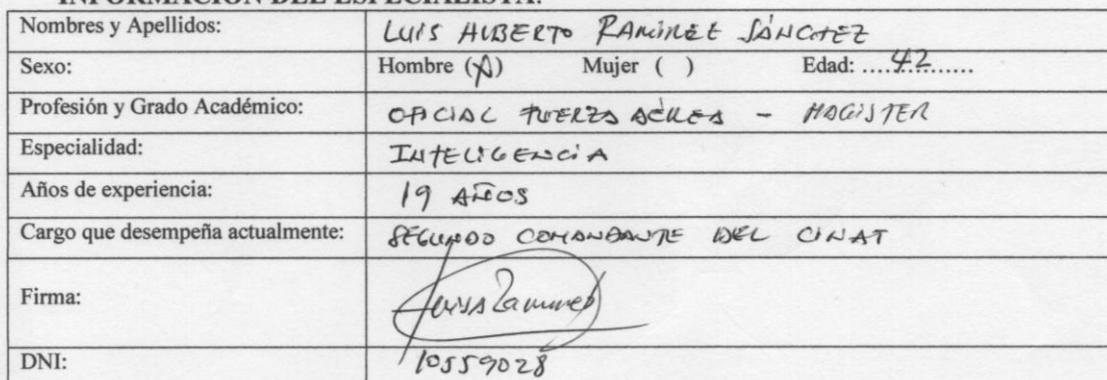 INFORMACIÓN DEL ESPECIALISTA:
Nombres y Apellidos: LUIS ALBERTO RAMÍREZ SÁNCHEZ
Sexo: Hombre (X) Mujer ( ) Edad: ....42......
Profesión y Grado Académico: OFICIAL FUERZA AÉREA - MAGISTER
Especialidad: INTELIGENCIA
Años de experiencia: 19 AÑOS
Cargo que desempeña actualmente: SEGUNDO COMANDANTE DEL CINAT
Firma: Luis A Ramirez
DNI: 10559028